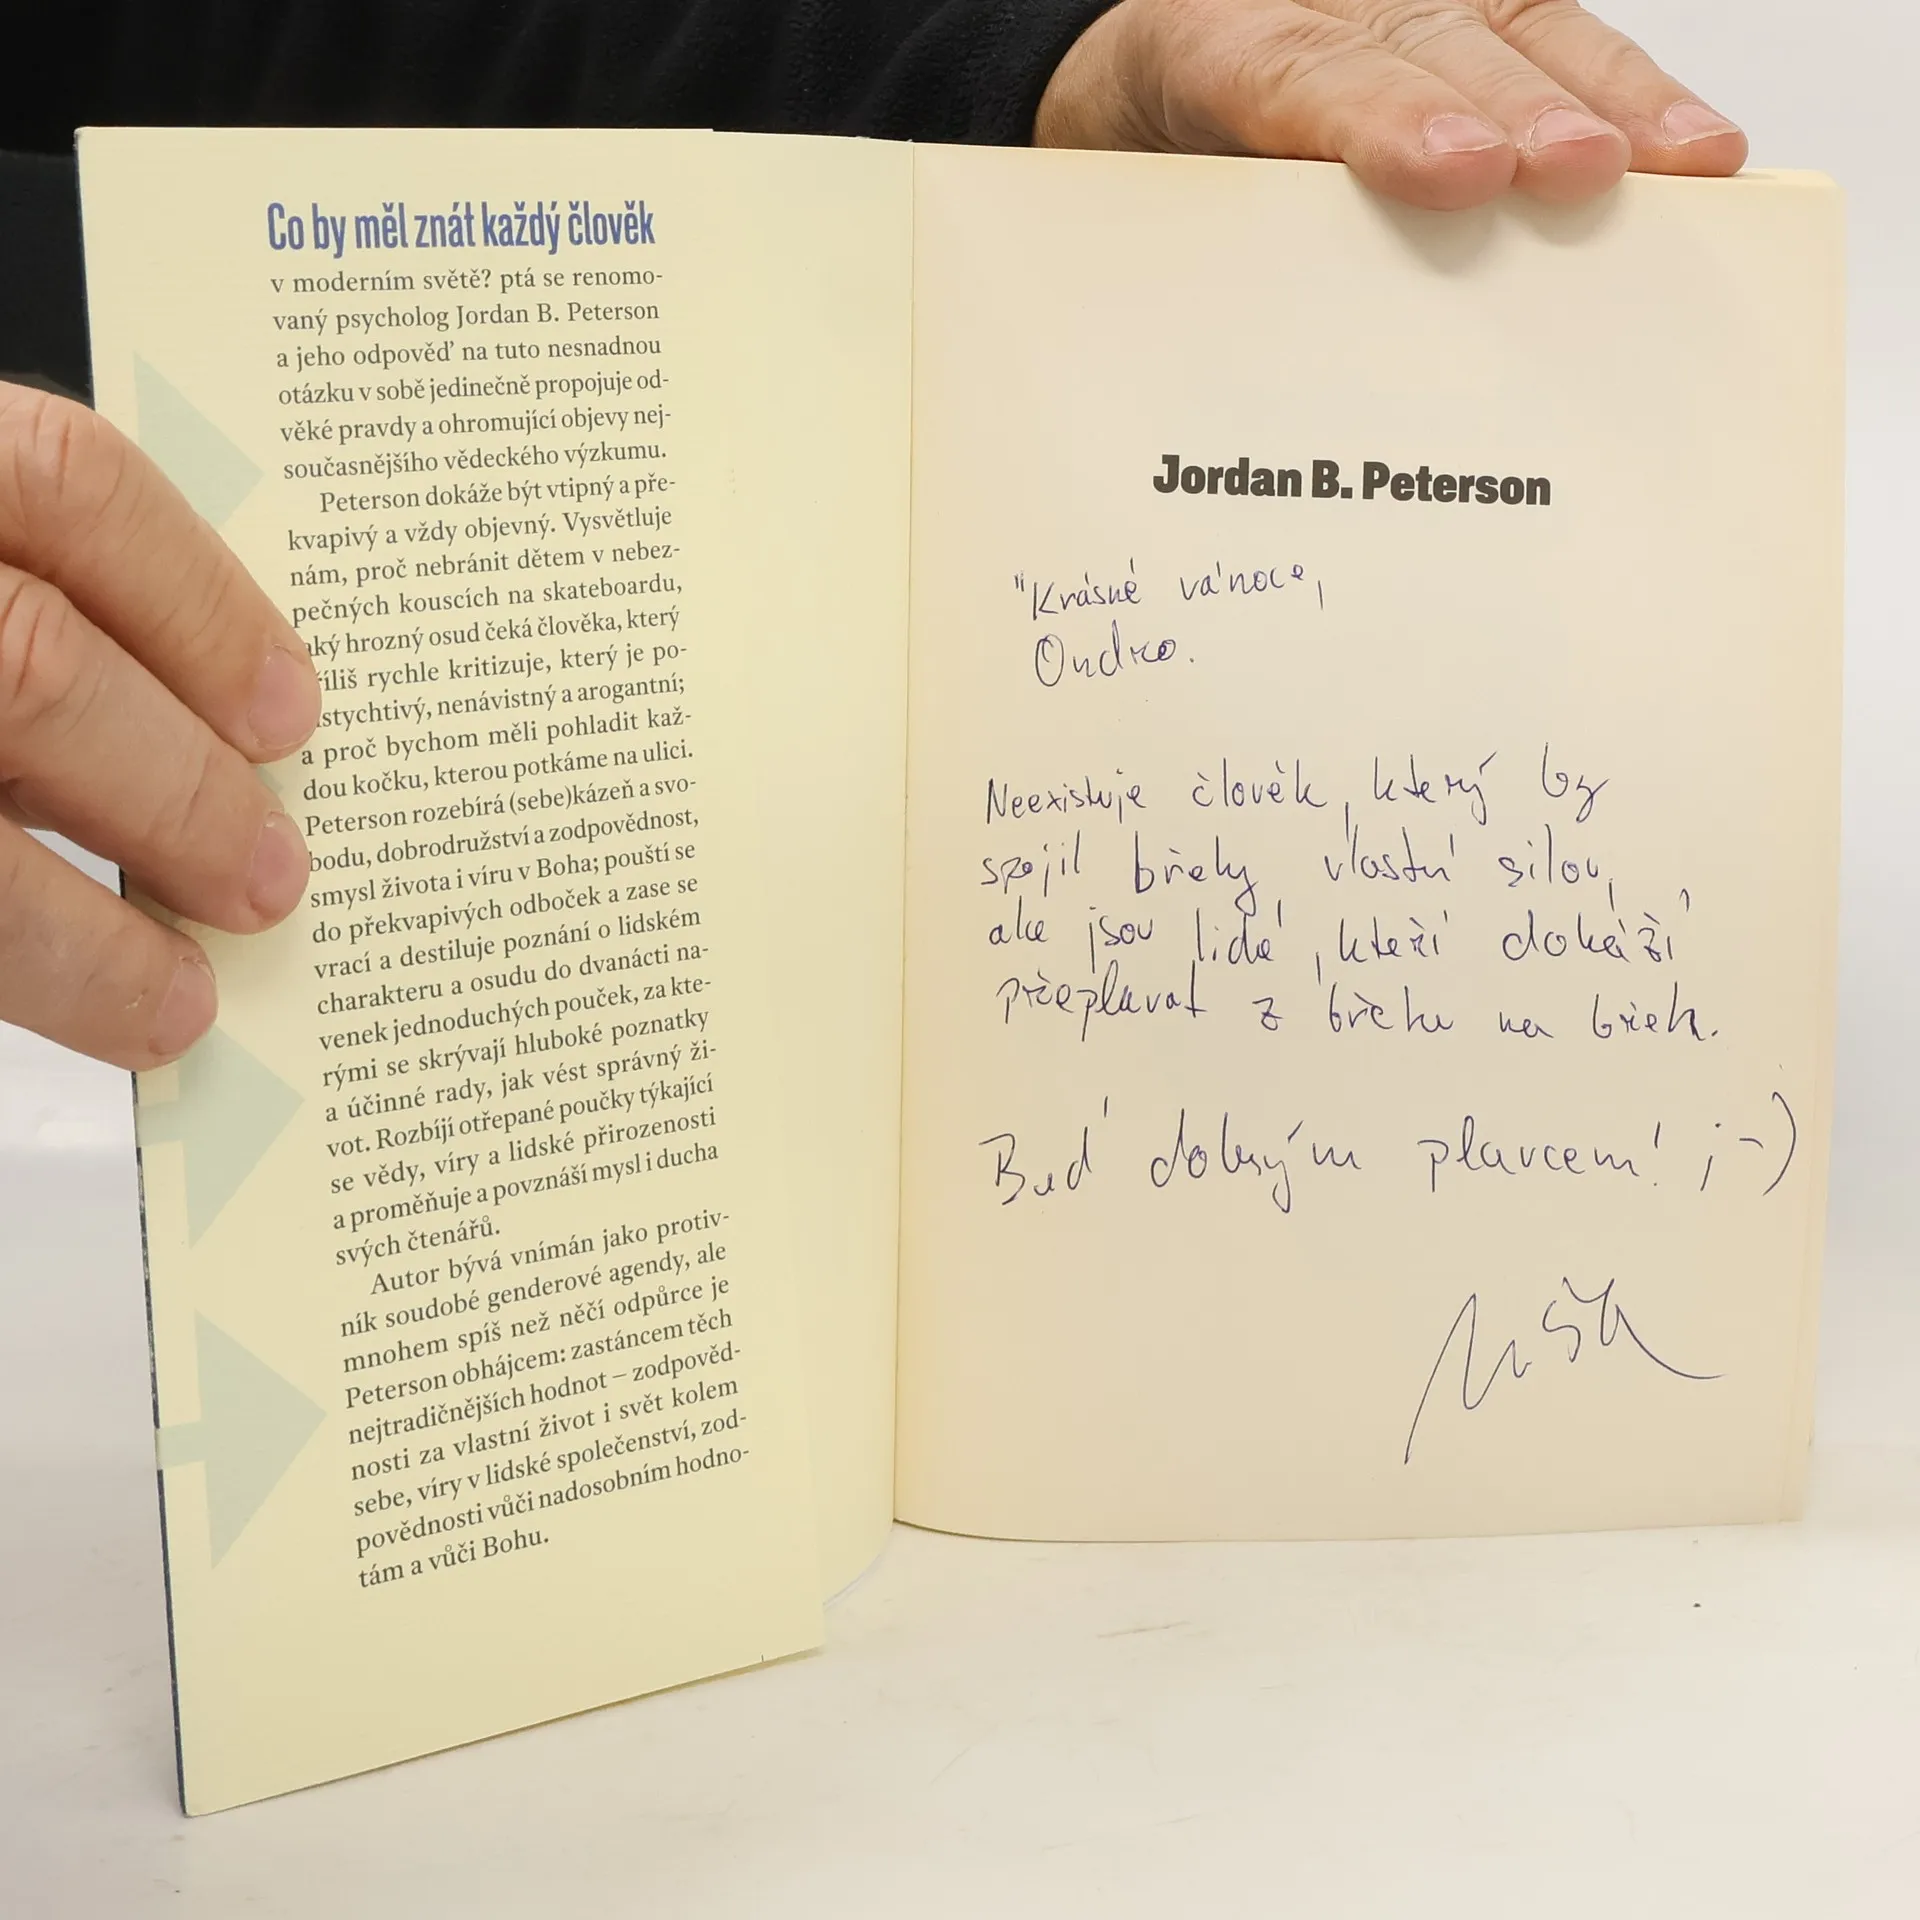 Co by měl znát každý člověk
v moderním světě? ptá se renomo-
vaný psycholog Jordan B. Peterson
a jeho odpověď na tuto nesnadnou
otázku v sobě jedinečně propojuje od-
věké pravdy a ohromující objevy nej-
současnějšího vědeckého výzkumu.
Peterson dokáže být vtipný a pře-
kvapivý a vždy objevný. Vysvětluje
nám, proč nebránit dětem v nebez-
pečných kouscích na skateboardu,
aký hrozný osud čeká člověka, který
íliš rychle kritizuje, který je po-
stychtivý, nenávistný a arogantní;
a proč bychom měli pohladit kaž-
dou kočku, kterou potkáme na ulici.
Peterson rozebírá (sebe)kázeň a svo-
bodu, dobrodružství a zodpovědnost,
smysl života i víru v Boha; pouští se
do překvapivých odboček a zase se
vrací a destiluje poznání o lidském
charakteru a osudu do dvanácti na-
venek jednoduchých pouček, za kte-
rými se skrývají hluboké poznatky
a účinné rady, jak vést správný ži-
vot. Rozbíjí otřepané poučky týkající
se vědy, víry a lidské přirozenosti
a proměňuje a povznáší mysl i ducha
svých čtenářů.
Autor bývá vnímán jako protiv-
ník soudobé genderové agendy, ale
mnohem spíš než něčí odpůrce je
Peterson obhájcem: zastáncem těch
nejtradičnějších hodnot – zodpověd-
nosti za vlastní život i svět kolem
sebe, víry v lidské společenství, zod-
povědnosti vůči nadosobním hodno-
tám a vůči Bohu.
Jordan B. Peterson
"Krásné vánoce,
Ondro.
Neexistuje člověk, který by
spojil břehy vlastní silou,
ale jsou lidé, kteří dokáží
přeplavat z břehu na břeh.
Buď dobrým plavcem! ;-)